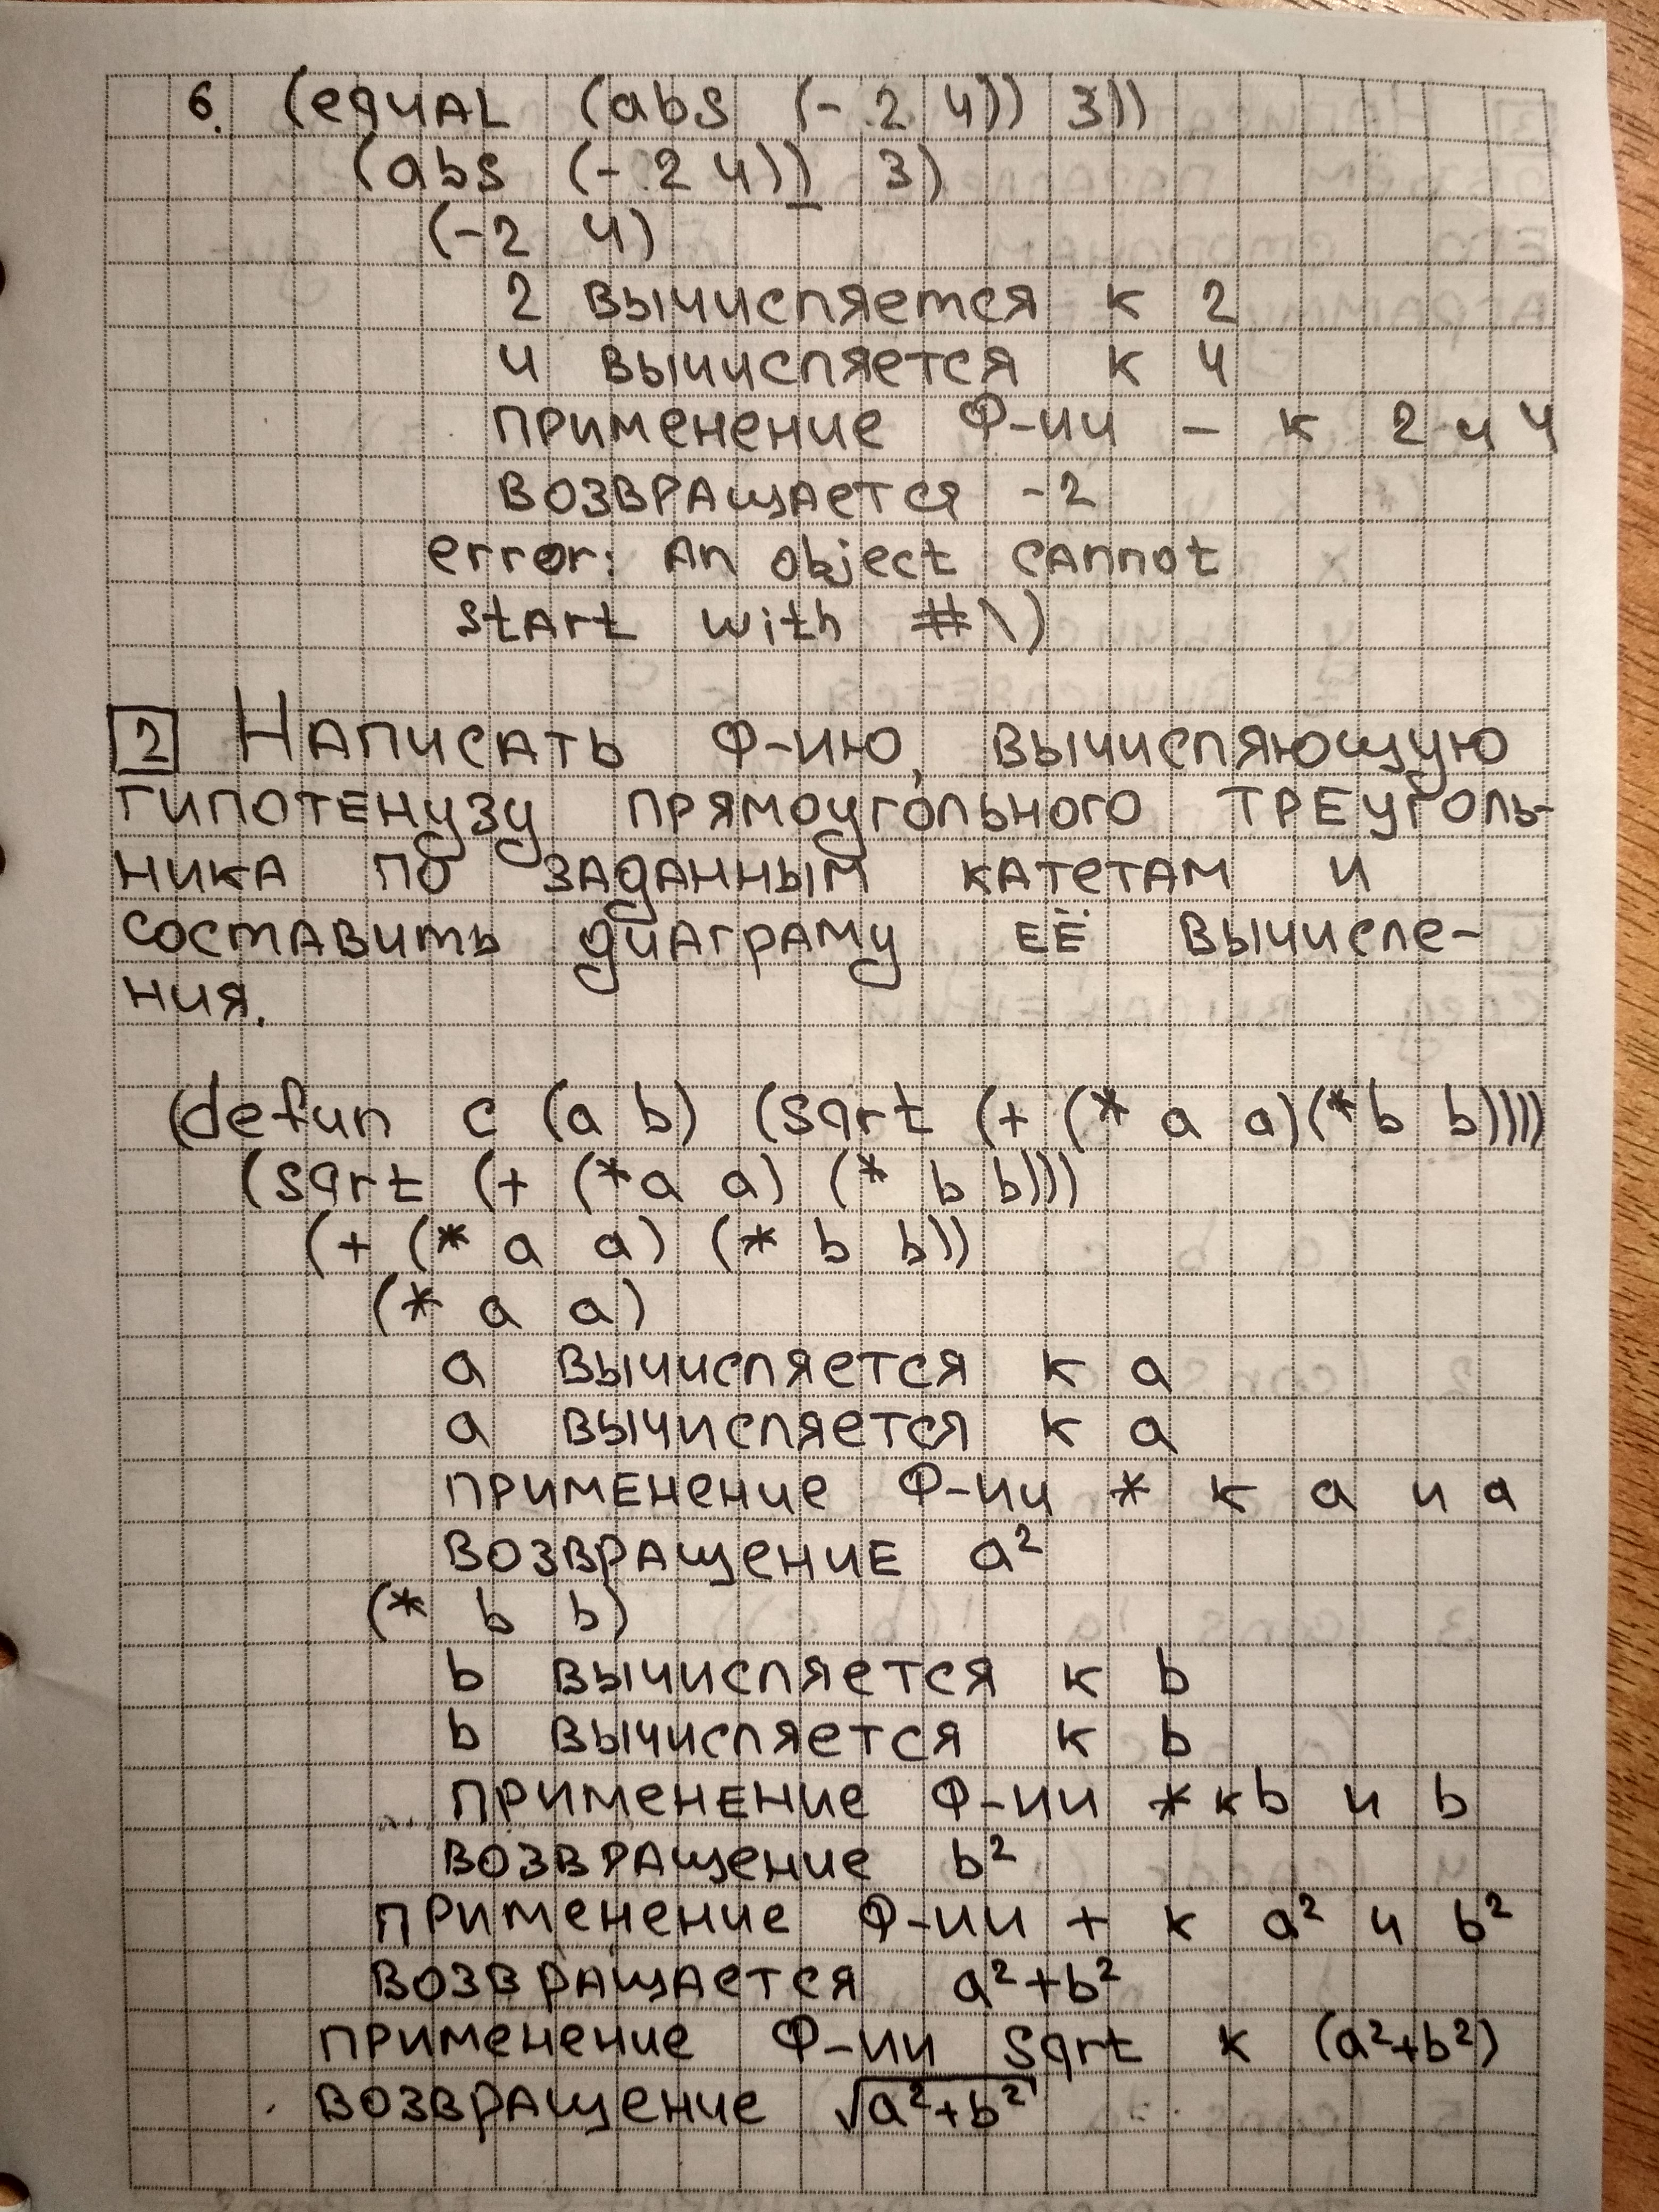 6. (equal (abs (- 2 4)) 3))
(abs (- 2 4)) 3)
(-2 4)
2 вычисляется к 2
4 вычисляется к 4
применение ф-ии - к 2 и 4
возвращается -2
error: An object cannot
start with #\)
2 Написать ф-ию, вычисляющую
гипотенузу прямоугольного треуголь-
ника по заданным катетам и
составить диаграму её вычисле-
ния.
(defun c (a b) (sqrt (+ (* a a)(* b b))))
(sqrt (+ (*a a) (* b b)))
(+ (* a a) (* b b))
(* a a)
a вычисляется к a
a вычисляется к a
применение ф-ии * к a и a
возвращение a²
(* b b)
b вычисляется к b
b вычисляется к b
применение ф-ии * к b и b
возвращение b²
применение ф-ии + к a² и b²
возвращается a²+b²
применение ф-ии sqrt к (a²+b²)
возвращение √a²+b²